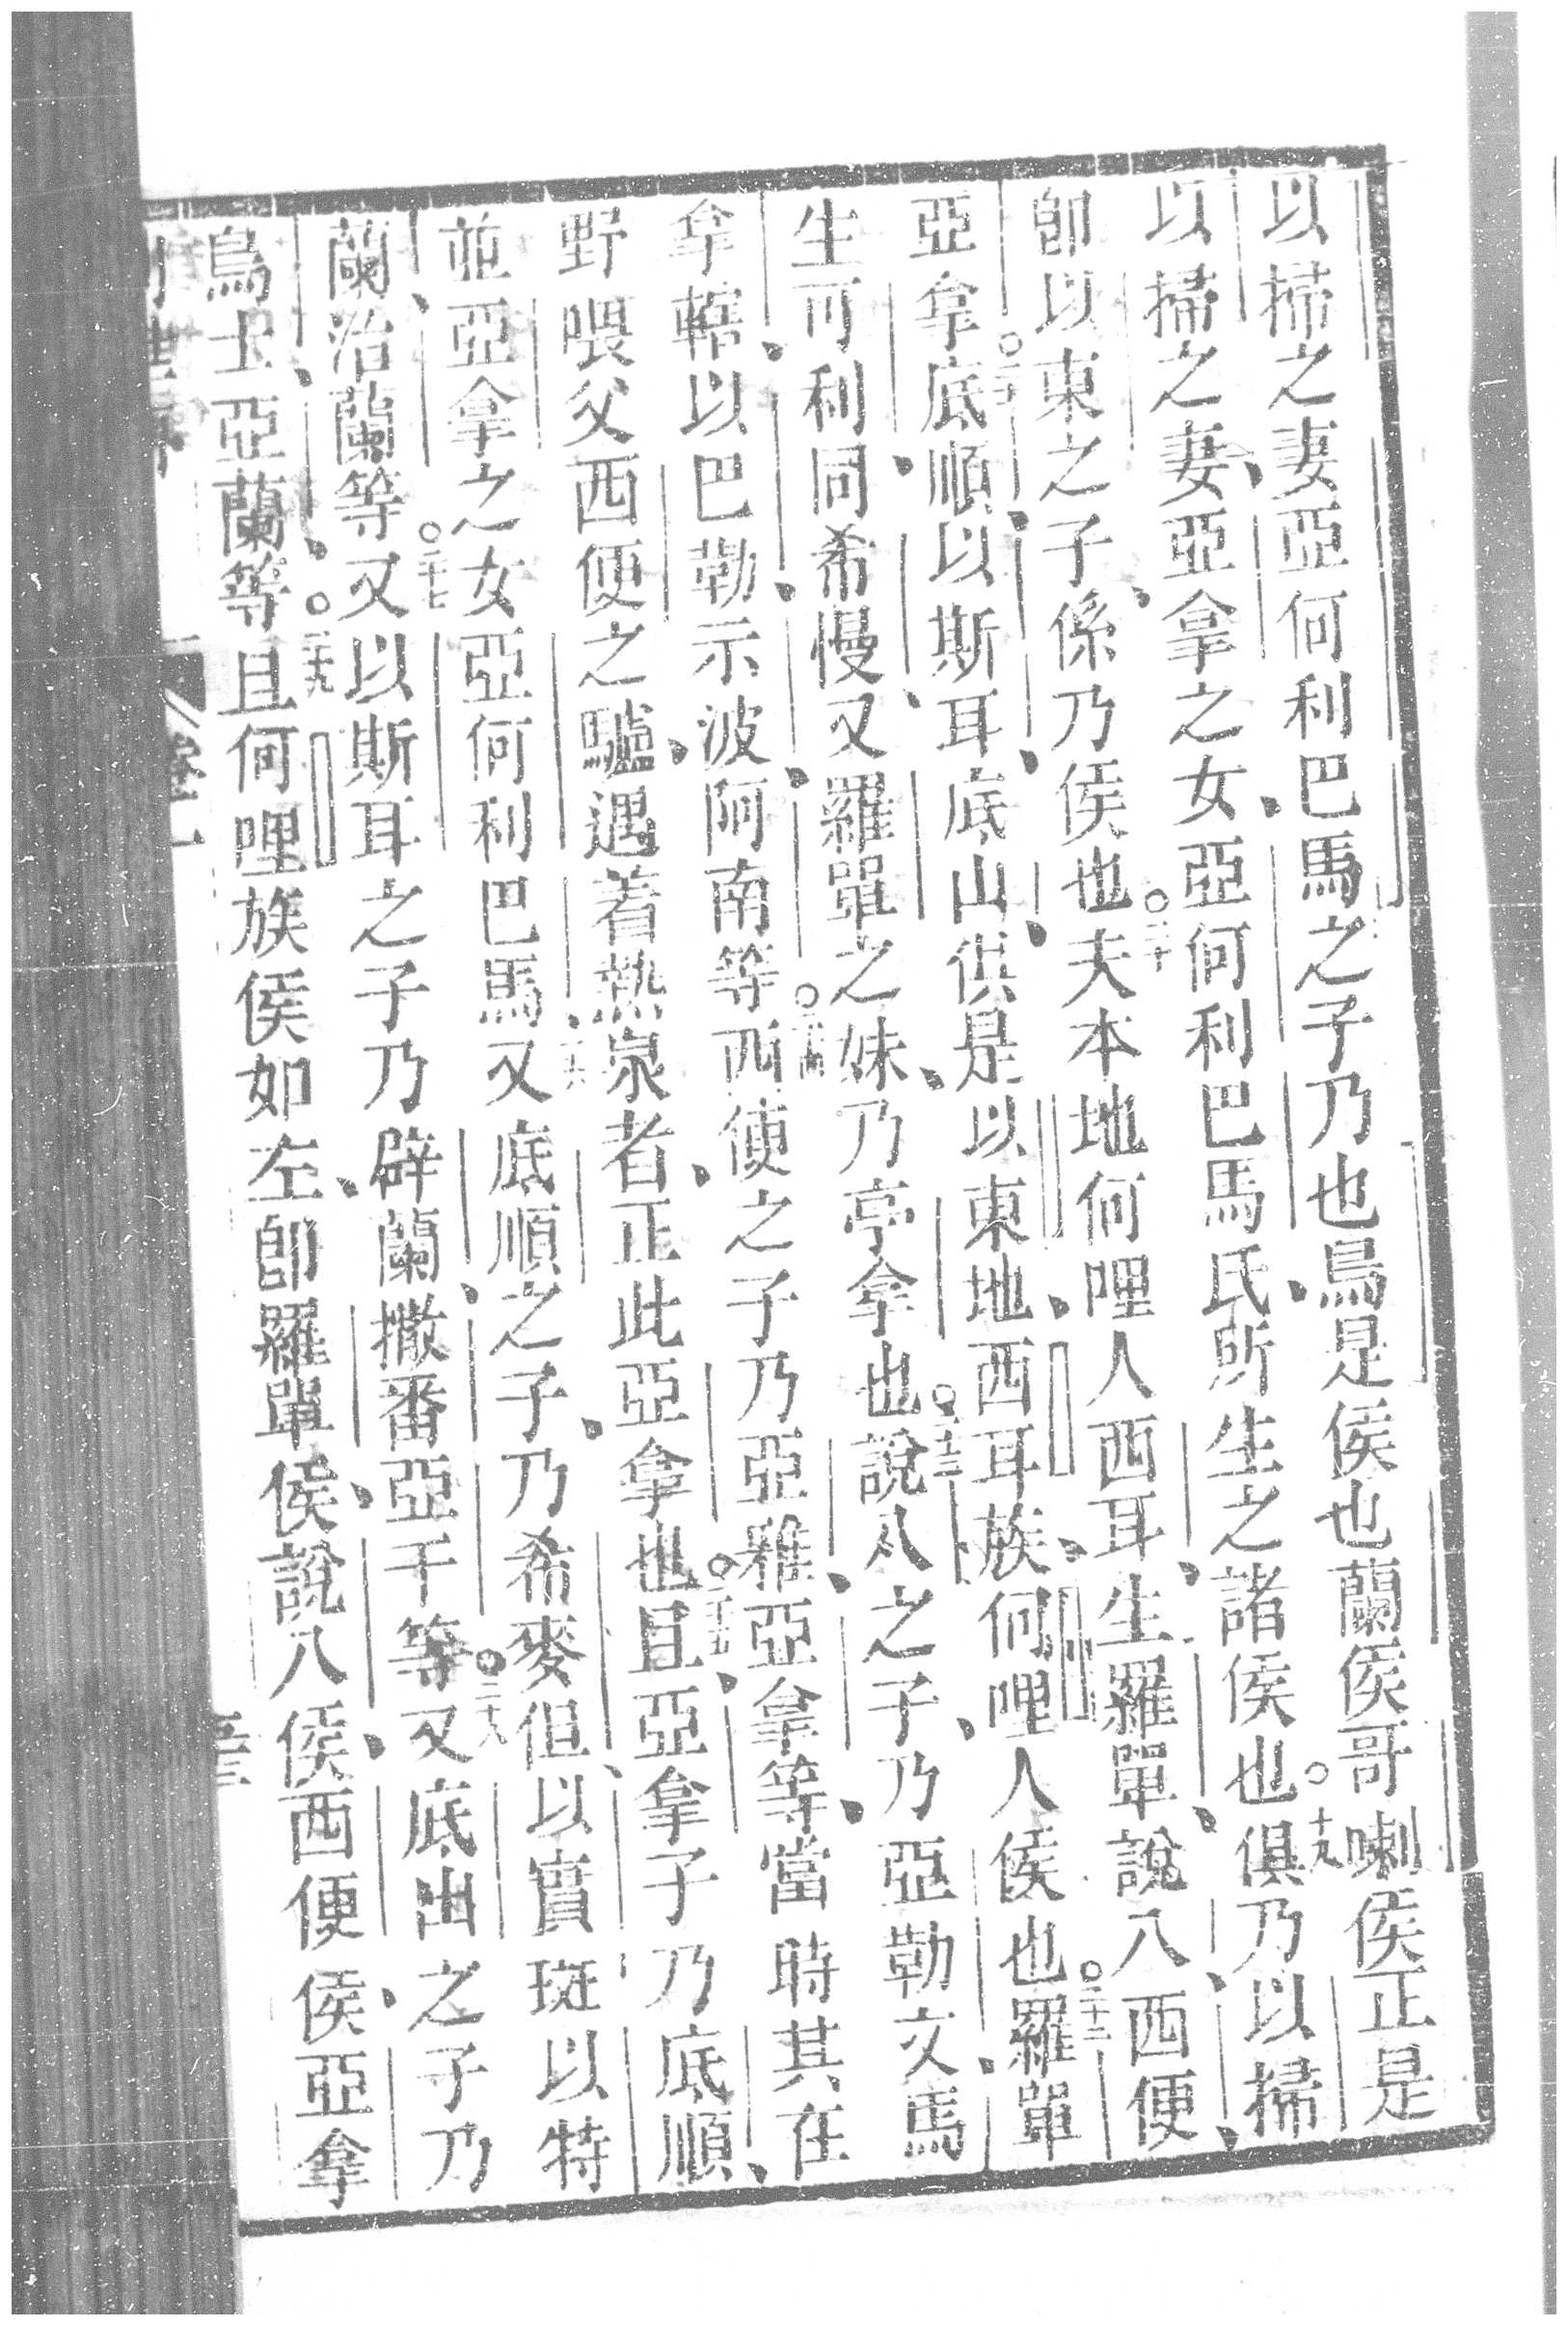 以掃之妻亞何利巴馬之子乃也烏是侯也蘭侯哥喇侯正是
以掃之妻亞拿之女亞何利巴馬氏所生之諸侯也。十九俱乃以掃
卽以東之子係乃侯也。二十夫本地何哩人西耳生羅單說八西便
亞拿。二十一底順以斯耳底山俱是以東地西耳族何哩人侯也。二十二羅單
生可利同希慢又羅單之妹乃亭拿也。二十三說八之子乃亞勒文馬
拿轄以巴勒示波阿南等。二十四西便之子乃亞雅亞拿等當時其在
野喂父西便之驢遇着熱泉者正此亞拿也。二十五且亞拿子乃底順
並亞拿之女亞何利巴馬。二十六又底順之子乃希麥但以實斑以特
蘭治蘭等。二十七又以斯耳之子乃辟蘭撒番亞干等。二十八又底山之子乃
烏士亞蘭等。二十九且何哩族侯如左卽羅單侯說八侯西便侯亞拿